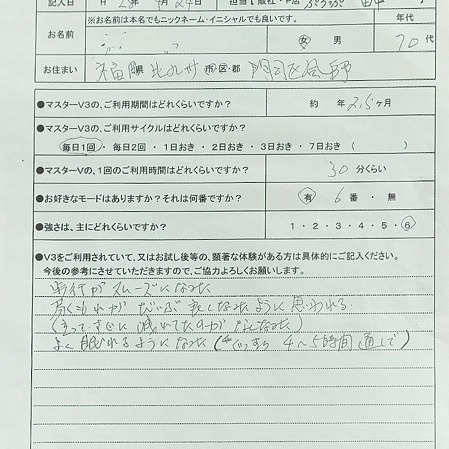 記入日 H 28年 月24日 担当 販社・P店
※お名前は本名でもニックネーム・イニシャルでも良いです。 年代
お名前 女・男 70代
お住まい 福岡県 北九州市・区・郡 門司区
●マスターV3の、ご利用期間はどれくらいですか？ 約 年 2.5ヶ月
●マスターV3の、ご利用サイクルはどれくらいですか？
毎日1回・毎日2回・1日おき・2日おき・3日おき・7日おき（ ）
●マスターV3の、1回のご利用時間はどれくらいですか？ 30分くらい
●お好きなモードはありますか？それは何番ですか？ 有 6番・無
●強さは、主にどれくらいですか？ 1・2・3・4・5・6
●V3をご利用されていて、又はお試し後等の、顕著な体験がある方は具体的にご記入ください。
今後の参考にさせていただきますので、ご協力よろしくお願いします。
歩行がスムーズになった
息切れがだいぶ なったように思われる
よく眠れるようになった（ 4〜5時間通しで）